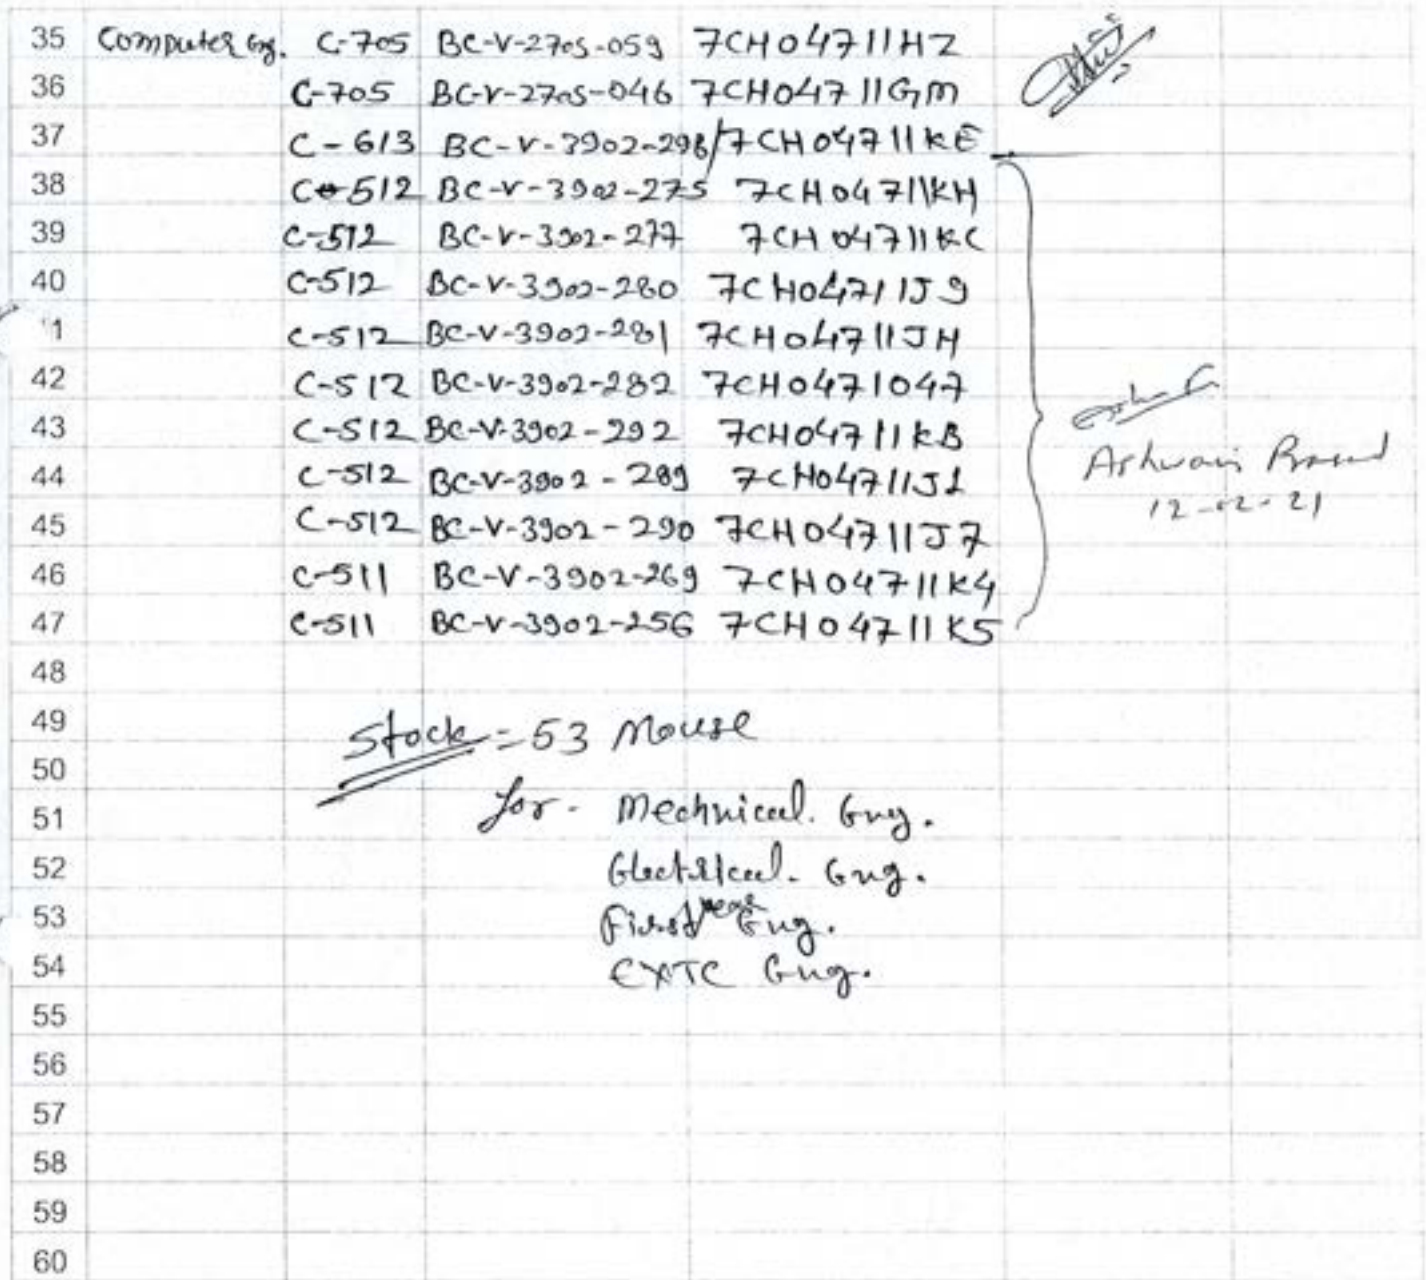 35 Computer Eng. C-705 BC-V-2705-059 7CH04711HZ
36 C-705 BC-V-2705-046 7CH04711GM
37 C-613 BC-V-3902-298/7CH04711KE
38 C-512 BC-V-3902-275 7CH04711KH
39 C-512 BC-V-3902-277 7CH04711KC
40 C-512 BC-V-3902-280 7CH04711J9
1 C-512 BC-V-3902-281 7CH04711JH
42 C-512 BC-V-3902-282 7CH0471047
43 C-512 BC-V-3902-292 7CH04711KB
44 C-512 BC-V-3902-289 7CH04711J1
45 C-512 BC-V-3902-290 7CH04711J7
46 C-511 BC-V-3902-269 7CH04711K4
47 C-511 BC-V-3902-256 7CH04711K5
12-02-21
48
49 Stock = 53 Mouse
50
51 for - Mechnical. Eng.
52 Electrical. Eng.
53 First year Eng.
54 EXTC Eng.
55
56
57
58
59
60